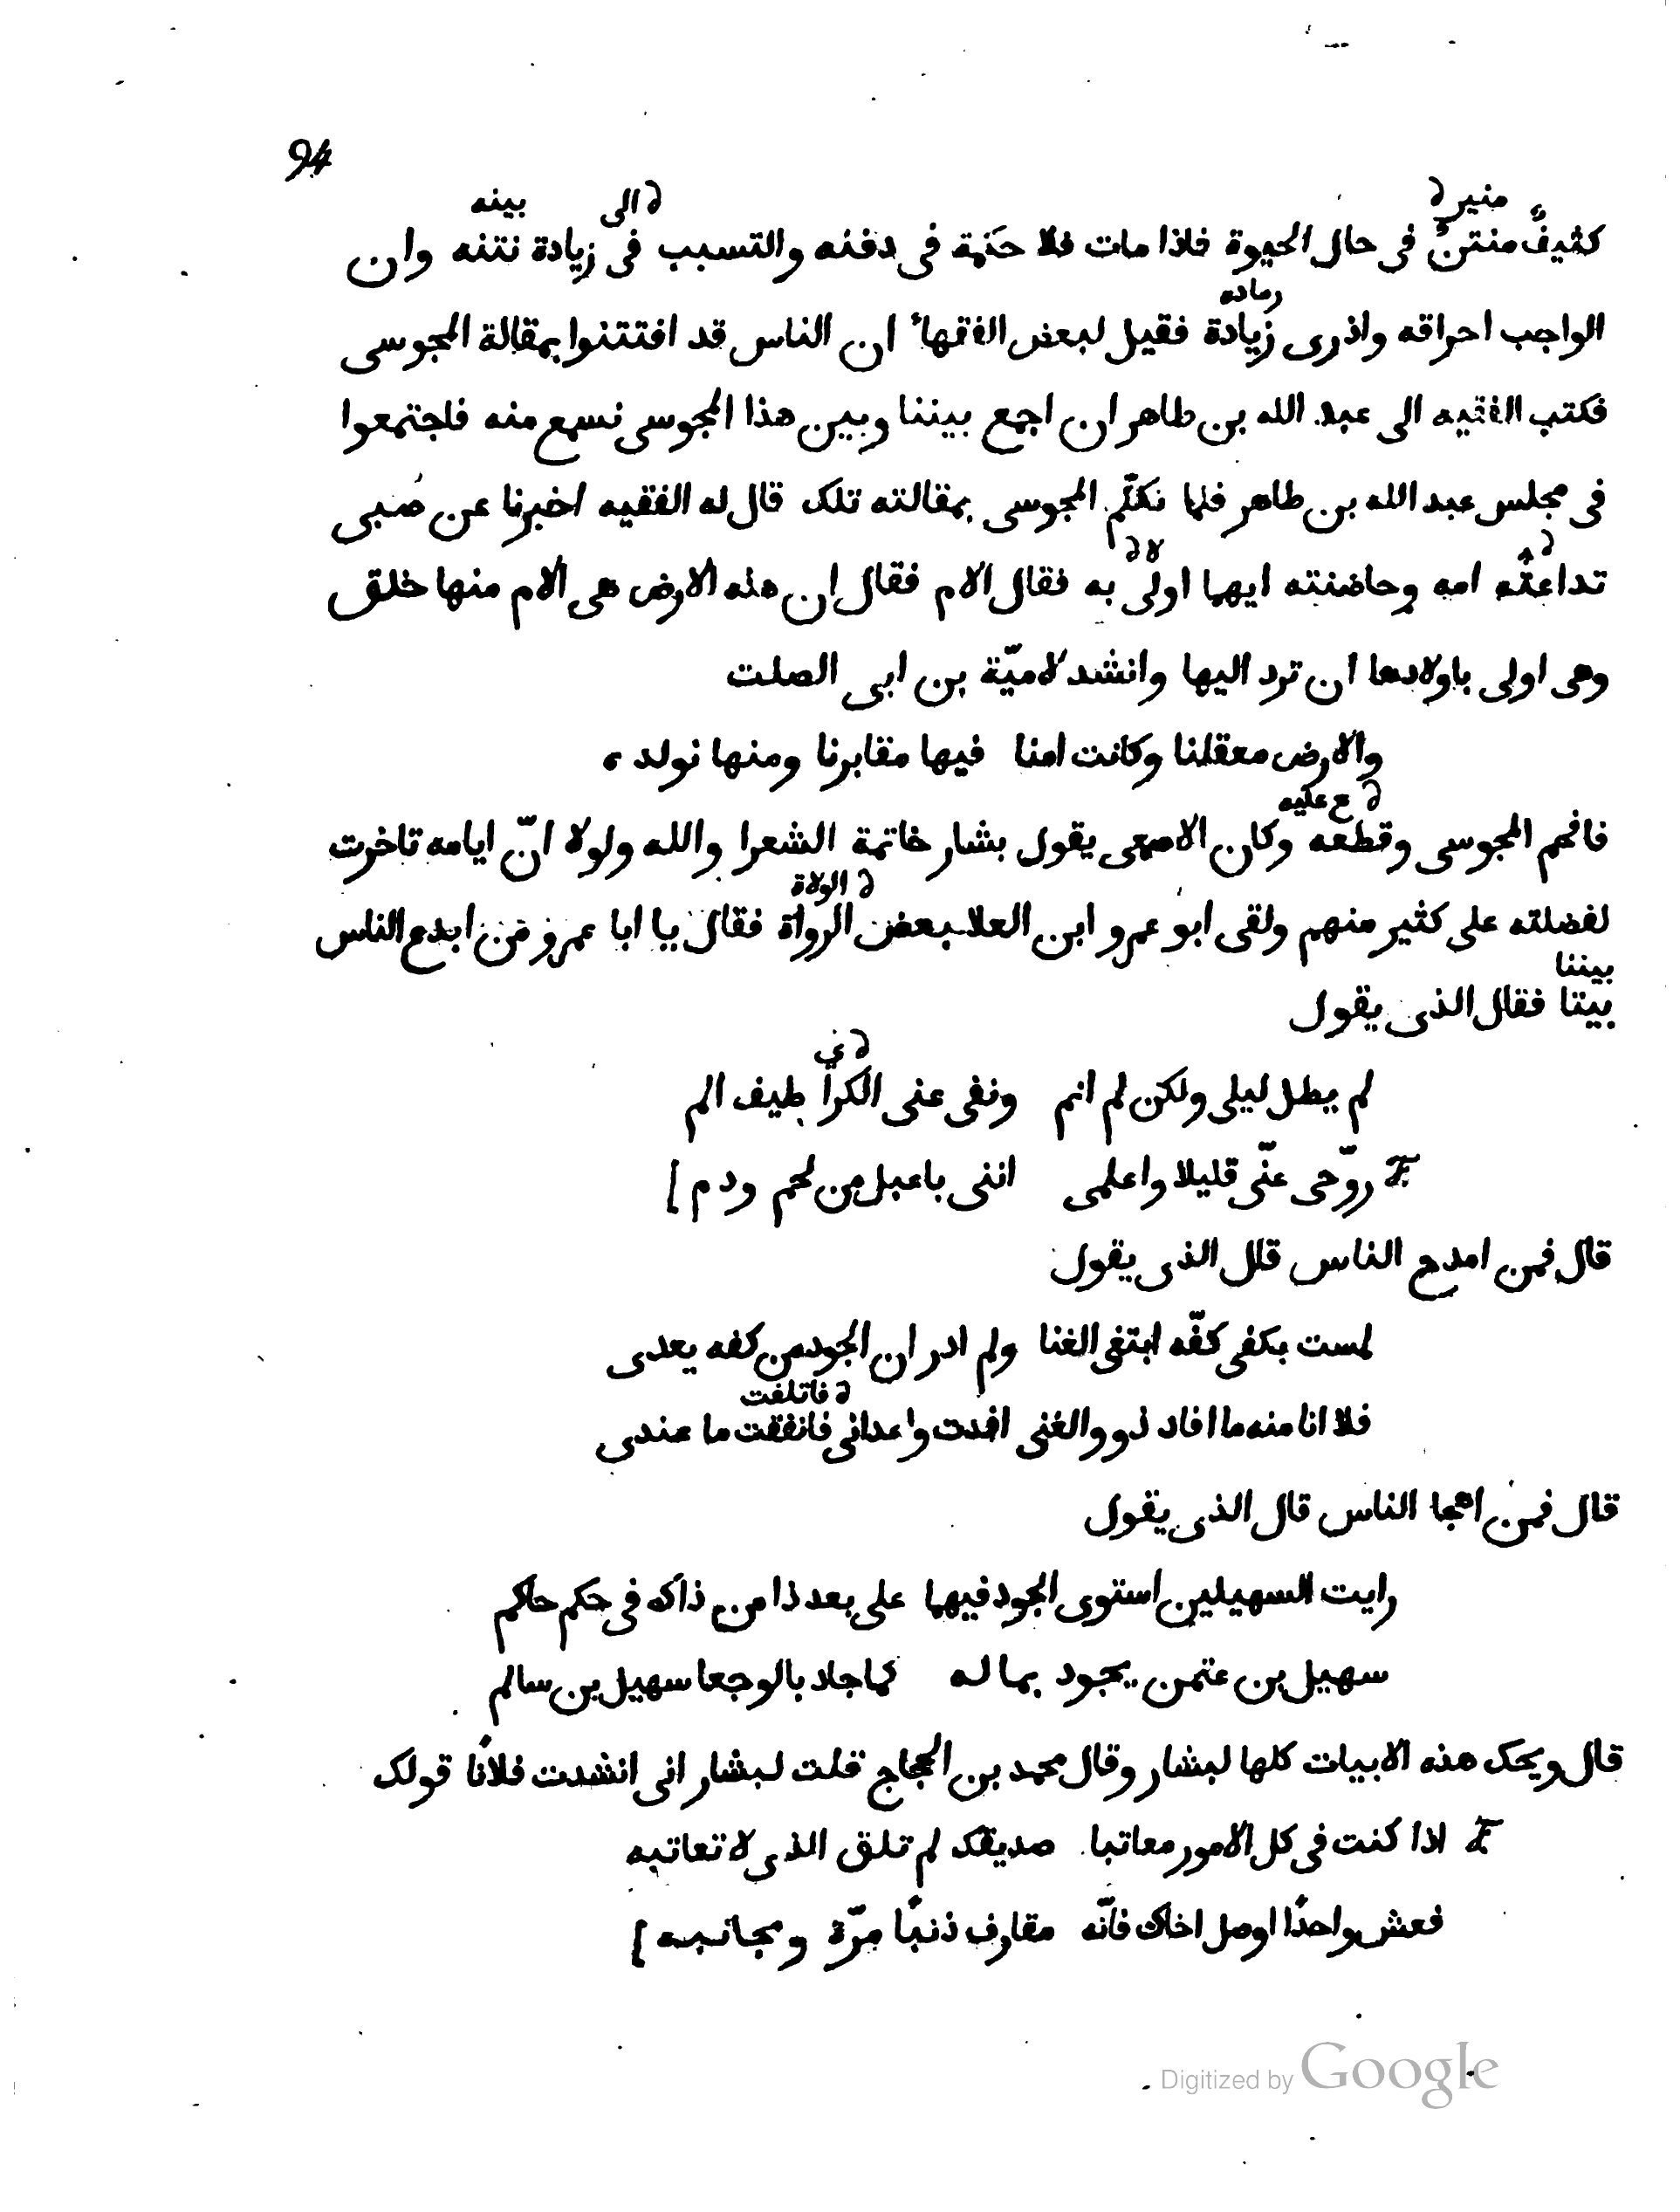 94
منير ﻻ الى بينه
كثيفٌ منتنٌ فى حال الحيوة فاذا مات فلا حكمة فى دفنه والتسبب فى زيادة نتنه وان
رماده
الواجب احراقه واذرى زيادة فقيل لبعض الفقهاء ان الناس قد افتتنوا بمقالة المجوسى
فكتب الفقيه الى عبد الله بن طاهر ان اجمع بيننا وبين هذا المجوسى نسمع منه فاجتمعوا
فى مجلس عبد الله بن طاهر فلما تكلّم المجوسى بمقالته تلك قال له الفقيه اخبرنا عن صبى
تداعته امه وحاضنته ايهما اولى به فقال الام فقال ان هذه الارض هى الام منها خلق
وهى اولى باولادها ان ترد اليها وانشد لاميّة بن ابى الصلت
والارض معقلنا وكانت امنا فيها مقابرنا ومنها نولد
ع عليه
فافحم المجوسى وقطعه وكان الاصمعى يقول بشار خاتمة الشعرا والله ولولا انّ ايامه تاخرت
الولاة
لفضلته على كثير منهم ولقى ابو عمرو ابن العلا بعض الرواة فقال يا ابا عمرو من ابدع الناس
بيننا
بيتا فقال الذى يقول
ى
لم يطل ليلى ولكن لم انم ونفى عنى الكرا طيف الم
روّحى عنّى قليلا واعلمى اننى باعبل من لحم ودم ]
قال فمن امدح الناس قلل الذى يقول
لمست بكفى كفّه ابتغى الغنا ولم ادر ان الجود من كفه يعدى
فاتلفت
فلا انا منه ما افاد ذوو الغنى افدت واعدانى فانفقت ما عندى
قال فمن اهجا الناس قال الذى يقول
رايت السهيلين استوى الجود فيهما على بعد ذا من ذاك فى حكم حاكم
سهيل بن عثمن يجود بماله كما جاد بالوجعا سهيل بن سالم
قال ويحك هذه الابيات كلها لبشار وقال محمد بن الحجاج قلت لبشار انى انشدت فلانًا قولك
اذا كنت فى كل الامور معاتبا صديقك لم تلق الذى لا تعاتبه
فعش واحدًا اوصل اخاك فانّه مقارف ذنبًا مرّة ومجانبه ]
Digitized by Google